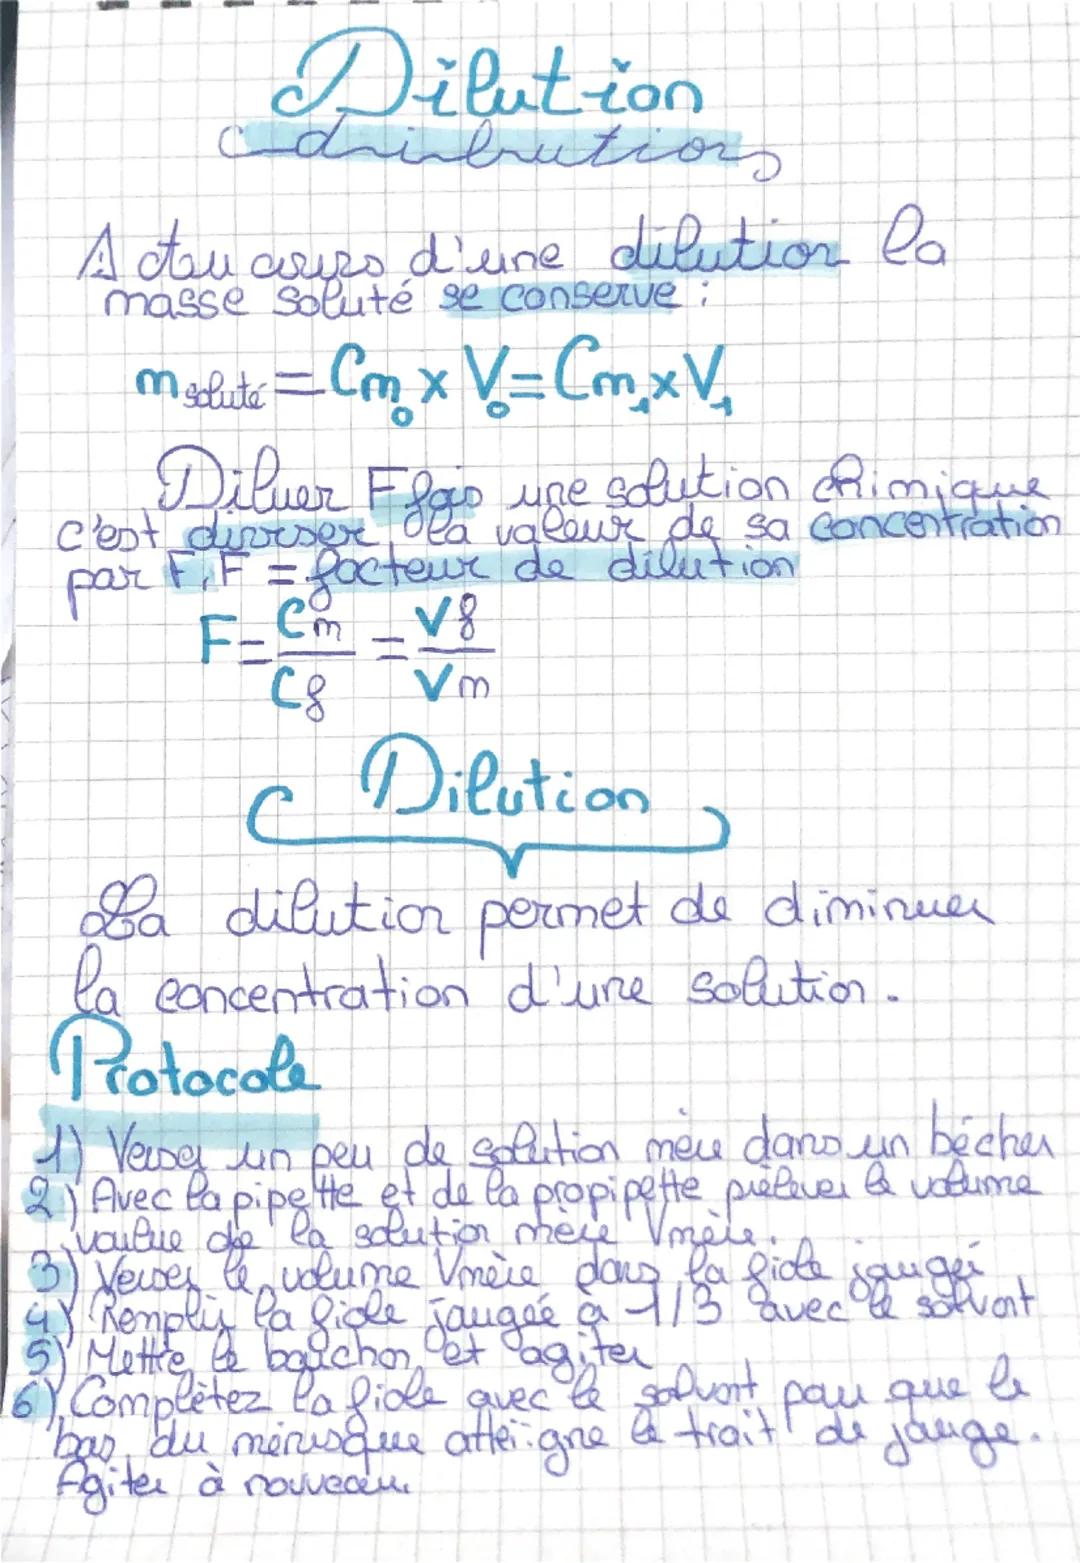 Dilution
A ctau cours d'une dilution la
masse soluté se conserve :
m soluté = Cm₀ x V₀ = Cm₁ x V₁
Diluer F fois une solution chimique
c'est diviser la valeur de sa concentration
par F, F = facteur de dilution
F = Cm/Cf = Vf/Vm
Dilution
La dilution permet de diminuer
la concentration d'une solution.
Protocole
1) Verser un peu de solution mère dans un bécher
2) Avec la pipette et de la propipette prélever le volume
voulue de la solution mère Vmère.
3) Verser le volume Vmère dans la fiole jaugée
4) Remplir la fiole jaugée à 1/3 avec le solvant
5) Mettre le bouchon et agiter
6) Complètez la fiole avec le solvant pour que le
bas du ménisque atteigne le trait de jauge.
Agiter à nouveau.